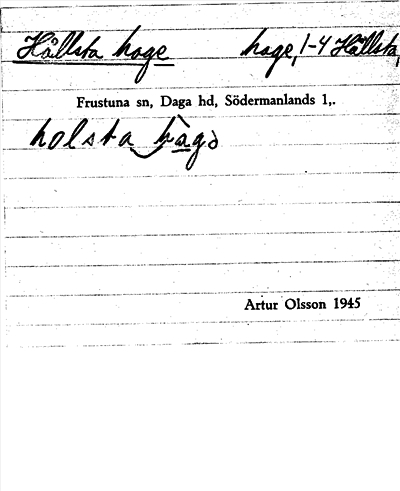 Hållsta hage hage, 1-4 Hållsta,
Frustuna sn, Daga hd, Södermanlands l,.
holsta
Artur Olsson 1945